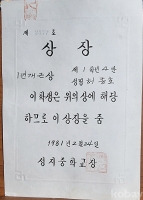 제 호
상장
1년개근상
제 1 학년 4 반
성명 허윤호
이 학생은 위의 상에 해당
하므로 이 상장을 줌
1981년 2월 24일
성지중학교장
kobay